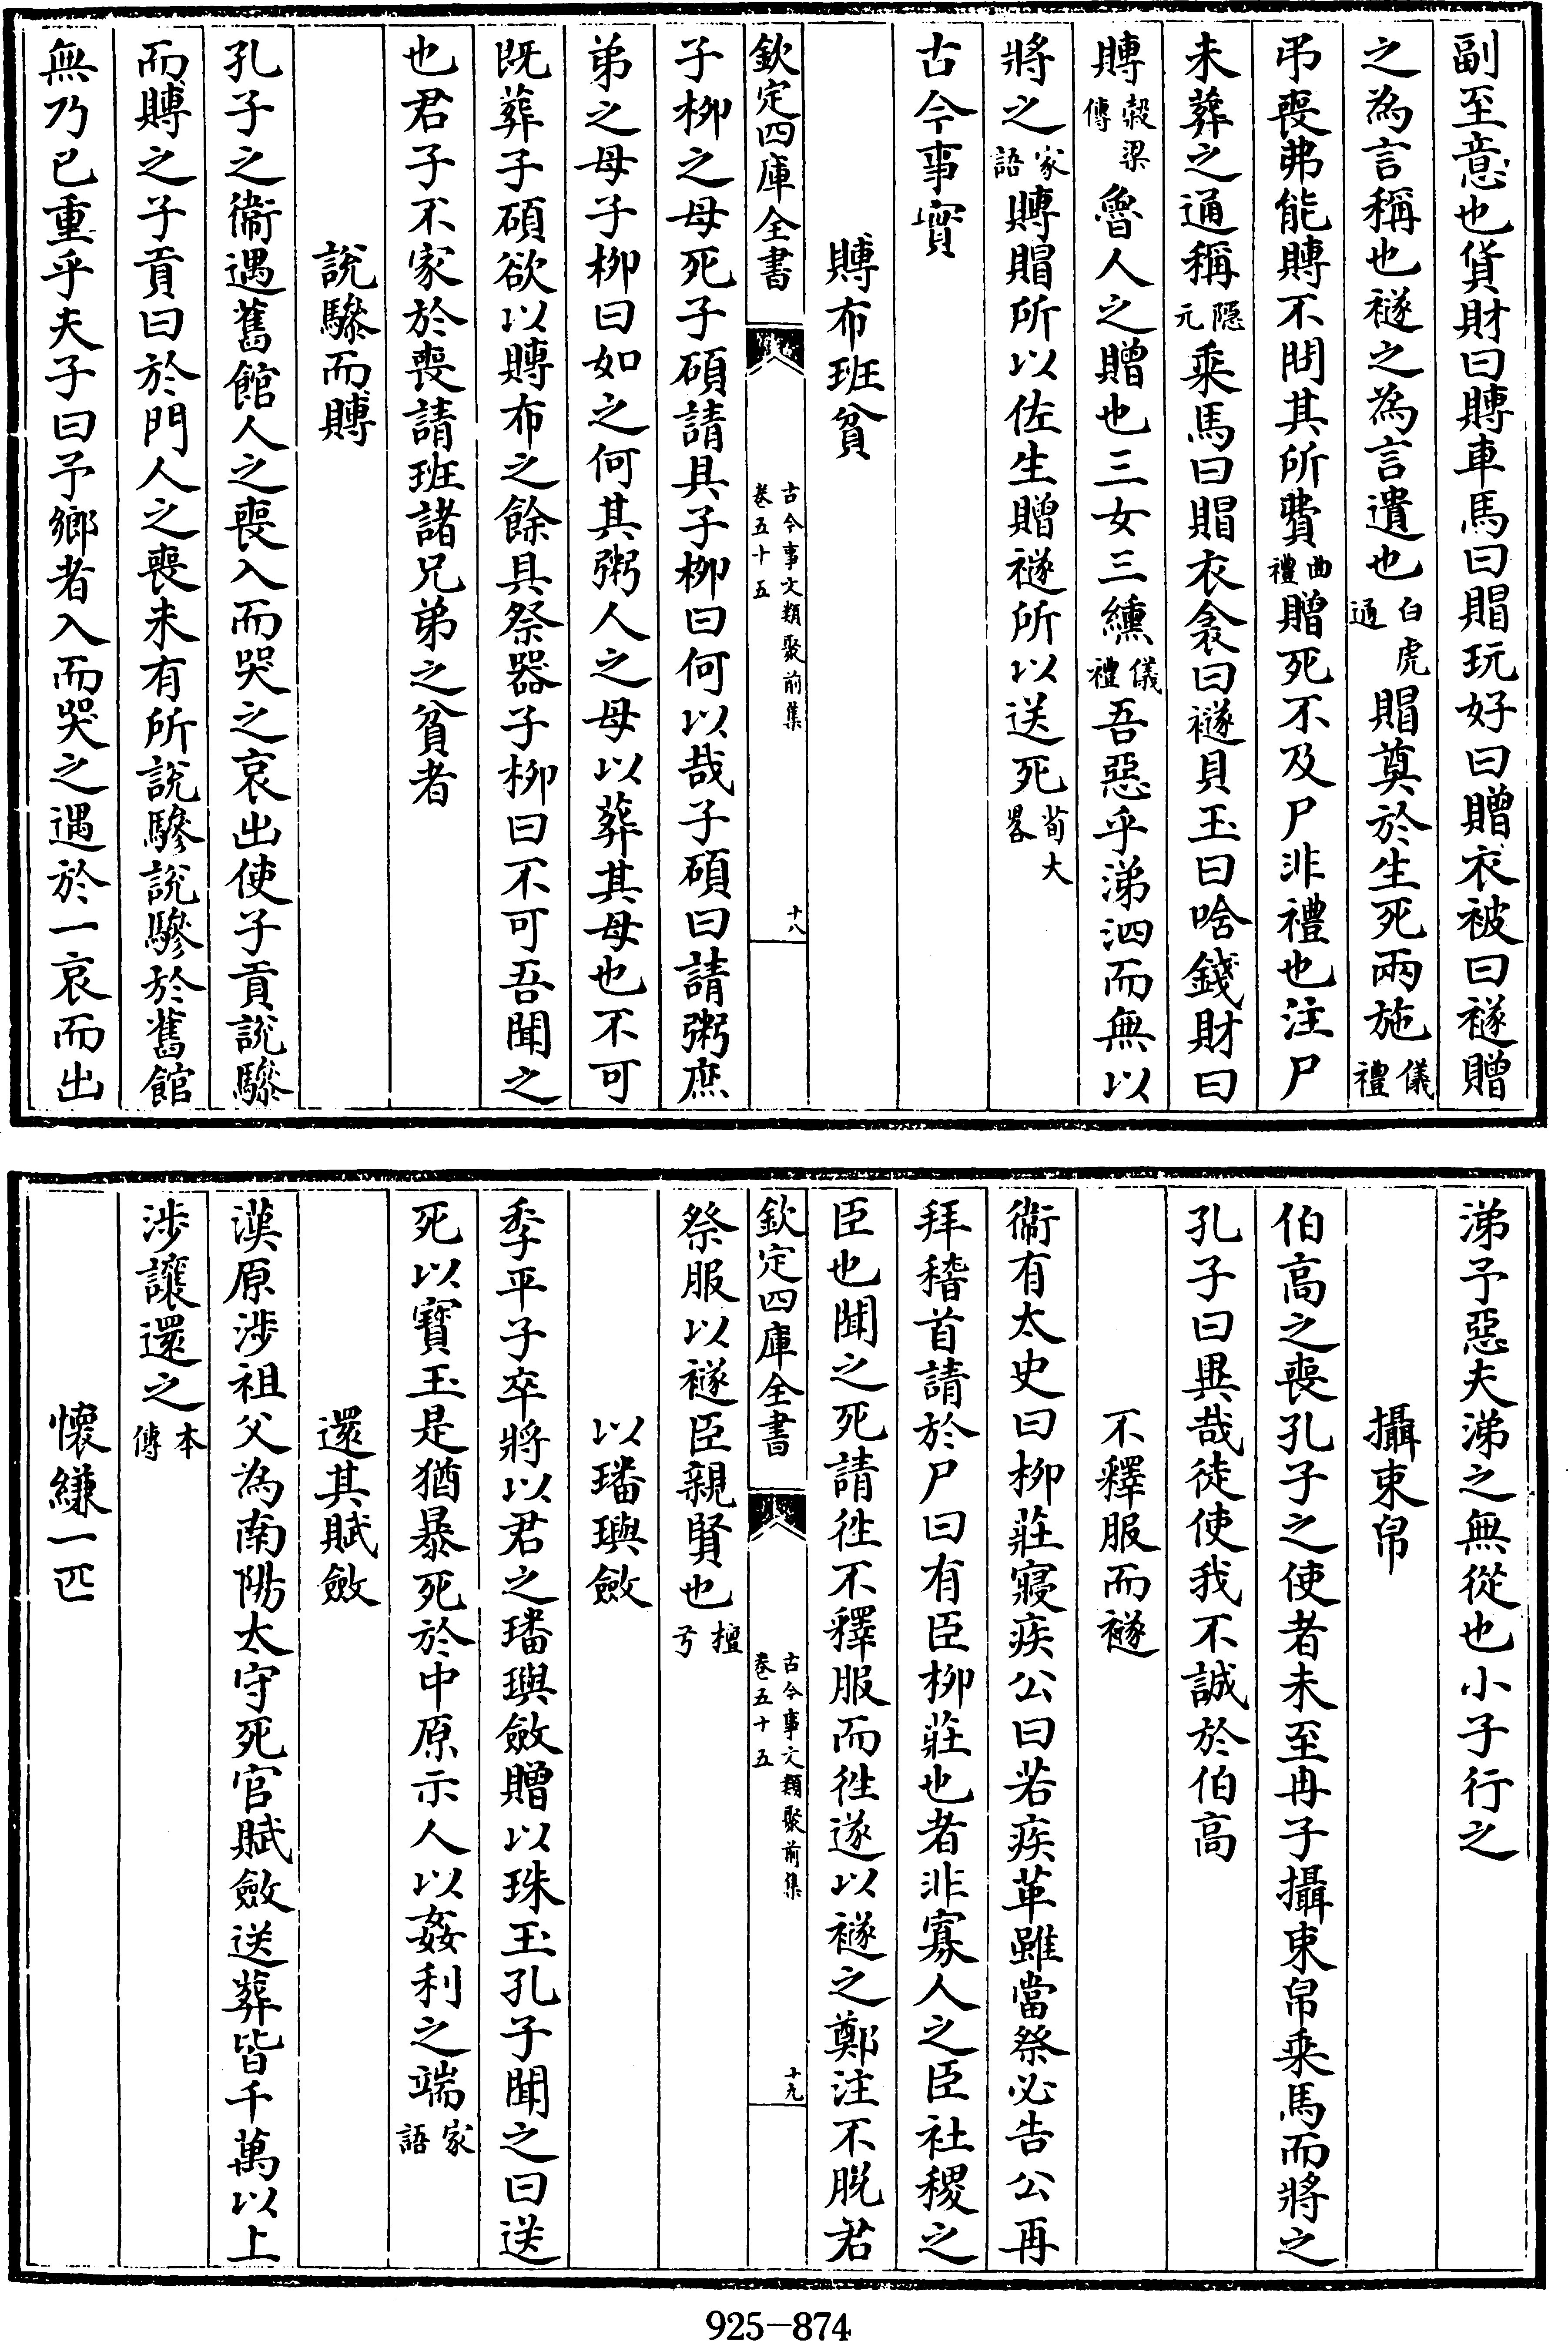 副至意也貨財曰賻車馬曰賵玩好曰贈衣被曰襚贈
之為言稱也襚之為言遺也白虎通賵奠於生死兩施儀禮
弔喪弗能賻不問其所費曲禮贈死不及尸非禮也注尸
未葬之通稱隱元乘馬曰賵衣衾曰襚貝玉曰唅錢財曰
賻穀梁傳魯人之贈也三女三纁儀禮吾惡乎涕泗而無以
將之家語賻賵所以佐生贈襚所以送死荀大畧
古今事實
賻布班貧
欽定四庫全書
古今事文類聚前集
卷五十五
十八
子柳之母死子碩請具子柳曰何以哉子碩曰請粥庶
弟之母子柳曰如之何其粥人之母以葬其母也不可
既葬子碩欲以賻布之餘具祭器子柳曰不可吾聞之
也君子不家於喪請班諸兄弟之貧者
說驂而賻
孔子之衞遇舊館人之喪入而哭之哀出使子貢說驂
而賻之子貢曰於門人之喪未有所說驂說驂於舊館
無乃已重乎夫子曰予鄉者入而哭之遇於一哀而出
涕予惡夫涕之無從也小子行之
攝束帛
伯高之喪孔子之使者未至冉子攝束帛乘馬而將之
孔子曰異哉徒使我不誠於伯高
不釋服而襚
衞有太史曰柳莊寢疾公曰若疾革雖當祭必告公再
拜稽首請於尸曰有臣柳莊也者非寡人之臣社稷之
臣也聞之死請徃不釋服而徃遂以襚之鄭注不脱君
欽定四庫全書
古今事文類聚前集
卷五十五
十九
祭服以襚臣親賢也檀弓
以璠璵斂
季平子卒將以君之璠璵斂贈以珠玉孔子聞之曰送
死以寶玉是猶暴死於中原示人以姦利之端家語
還其賦斂
漢原涉祖父為南陽太守死官賦斂送葬皆千萬以上
涉讓還之本傳
懷縑一匹
925-874